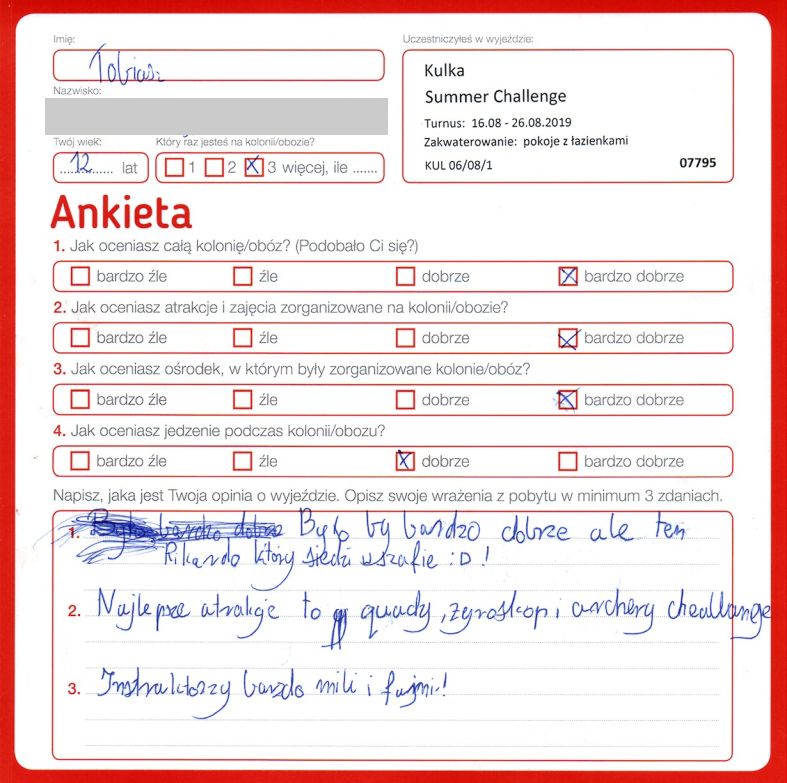 Imię:
Tobiasz
Uczestniczyłeś w wyjeździe:
Kulka
Summer Challenge
Turnus: 16.08 - 26.08.2019
Zakwaterowanie: pokoje z łazienkami
KUL 06/08/1 07795
Nazwisko:
Twój wiek:
..... 12 ..... lat
Który raz jesteś na kolonii/obozie?
1 2 3 więcej, ile .......
Ankieta
1. Jak oceniasz całą kolonię/obóz? (Podobało Ci się?)
bardzo źle źle dobrze bardzo dobrze
2. Jak oceniasz atrakcje i zajęcia zorganizowane na kolonii/obozie?
bardzo źle źle dobrze bardzo dobrze
3. Jak oceniasz ośrodek, w którym były zorganizowane kolonie/obóz?
bardzo źle źle dobrze bardzo dobrze
4. Jak oceniasz jedzenie podczas kolonii/obozu?
bardzo źle źle dobrze bardzo dobrze
Napisz, jaka jest Twoja opinia o wyjeździe. Opisz swoje wrażenia z pobytu w minimum 3 zdaniach.
1. Było bardzo dobrze Było by bardzo dobrze ale ten
Rikardo który siedzi wszafie :D !
2. Najlepsze atrakcje to quady, żyroskop i archery cheallange
3. Instruktorzy bardzo mili i fajni!